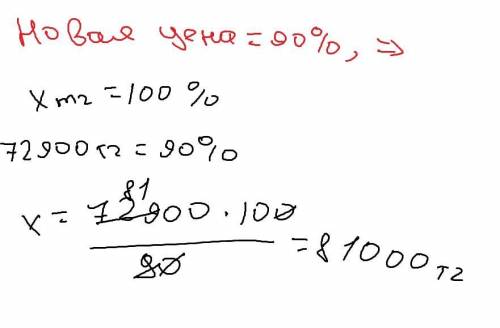 Новая цена = 90%, =>
x тг = 100 %
72900 тг = 90%
81
x = 72900 · 100
90
= 81000 тг